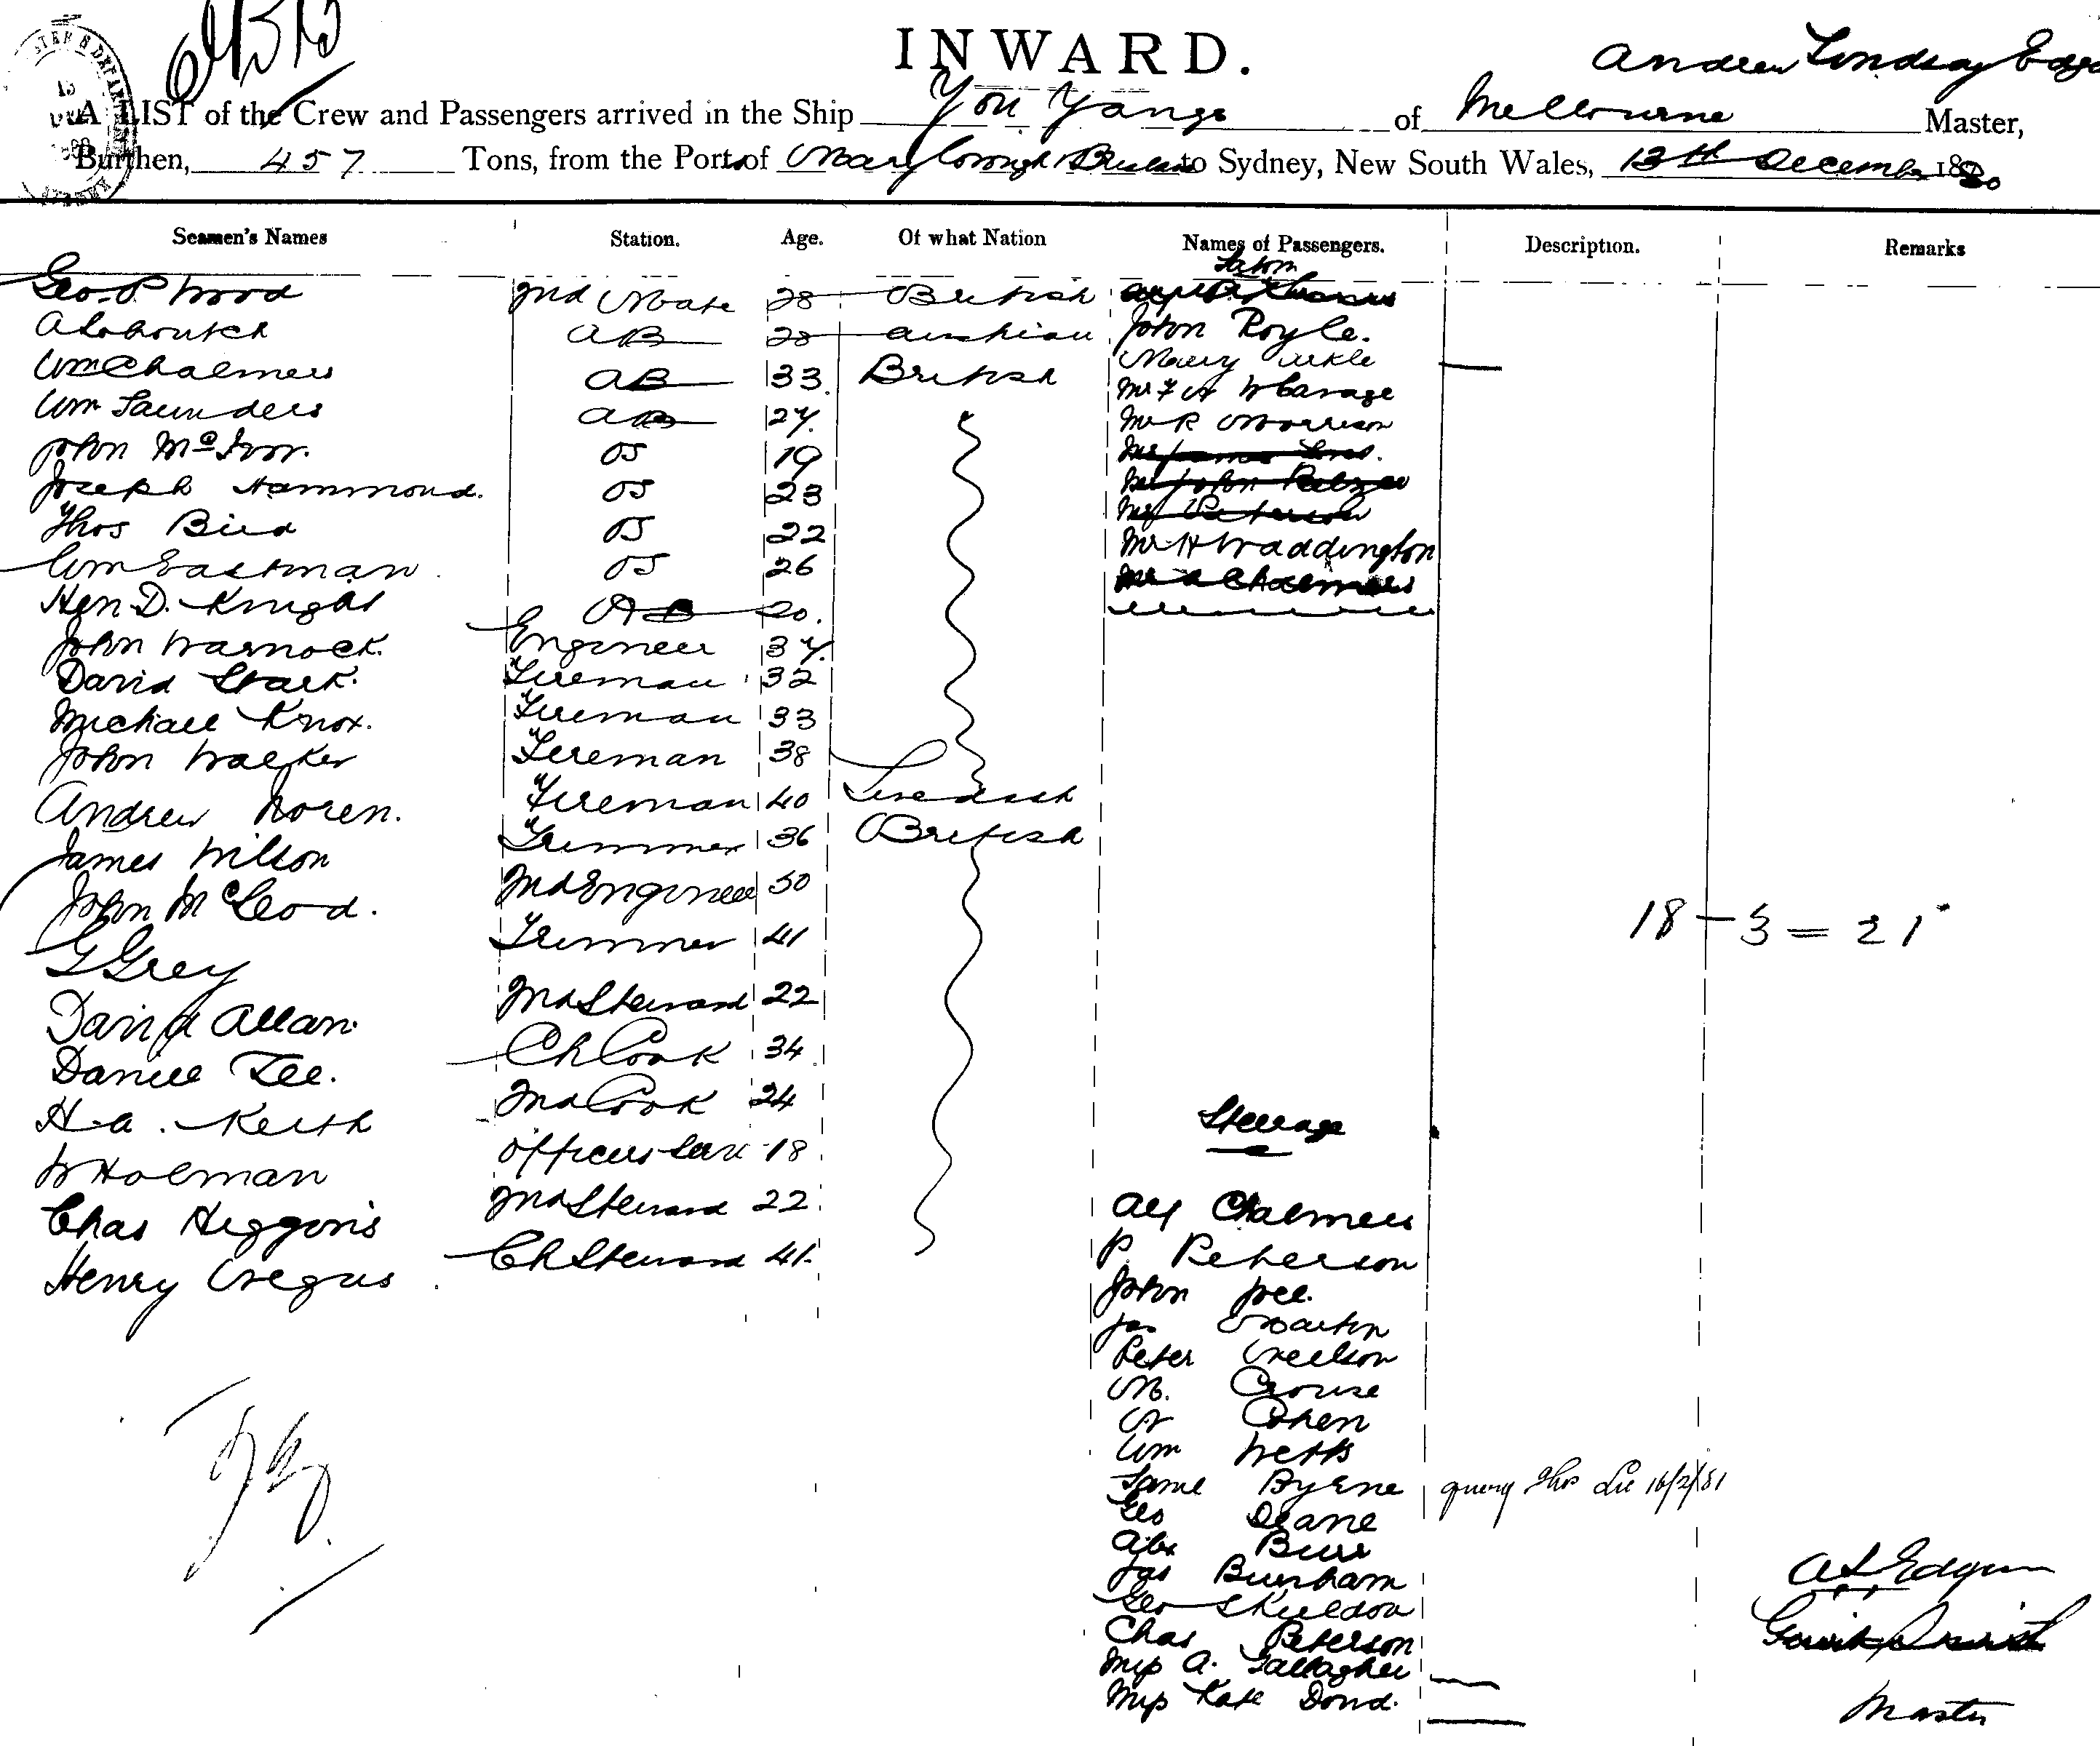 INWARD.
Andrew Lindsay Edga
A LIST of the Crew and Passengers arrived in the Ship You Yangs of Melbourne Master,
Burthen, 457 Tons, from the Ports of Maryborough Brisbane to Sydney, New South Wales, 13th December 1880
Seamen's Names Station. Age. Of what Nation Names of Passengers. Description. Remarks
Saloon
Geo. P Wood 2nd Mate 28 British
AB 28 Austrian John Royle.
Wm Chalmers AB 33 British Mary
Wm Saunders AB 27. Mr F A
John McIvor. OS 19 Mr R Morrison
Joseph Hammond. OS 23
Thos Bird OS 22
Wm Eastman OS 26 Mr H Waddington
Hen. D. Knight AB 20. Mr A Chalmers
John Warnock. Engineer 37.
David Stark. Fireman 32
Michael Knox. Fireman 33
John Walker Fireman 38
Andrew Noren. Fireman 40 Swedish
James Wilson Trimmer 36 British
John McLeod. 2nd Engineer 50
G Grey Trimmer 41
18 - 3 = 21
David Allan. 2nd Steward 22
Daniel Lee. Ch Cook 34
H. A. Keith 2nd Cook 24
Steerage
W Holman Officers Serv 18
Chas Higgons 2nd Steward 22
Henry Negus Ch Steward 41.
Alf Chalmers
P. Peterson
John
Jas Martin
Peter Neilson
M. Crouse
N Cohen
Wm Wetts
Saml Byrne query Thos Lee 16/2/81
Geo Deane
Alex Burr
Jas Burnham
Geo Skeeldon
Chas Peterson
Miss A. Gallagher
Miss Kate Dond.
A L Edgar
Master